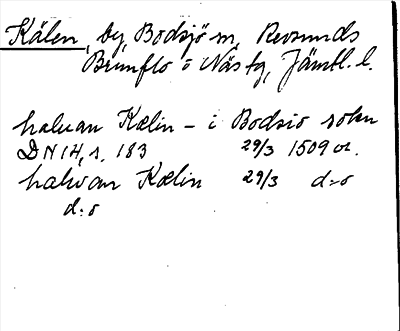 Kälen, by, Bodsjö sn, Revsunds
Brunflo o Näs tg, Jämtl. l.
halvan Kælin – i Bodsio sokn
DN 14, s. 183 29/3 1509 or.
halvan Kælin 29/3 d:o
d:o